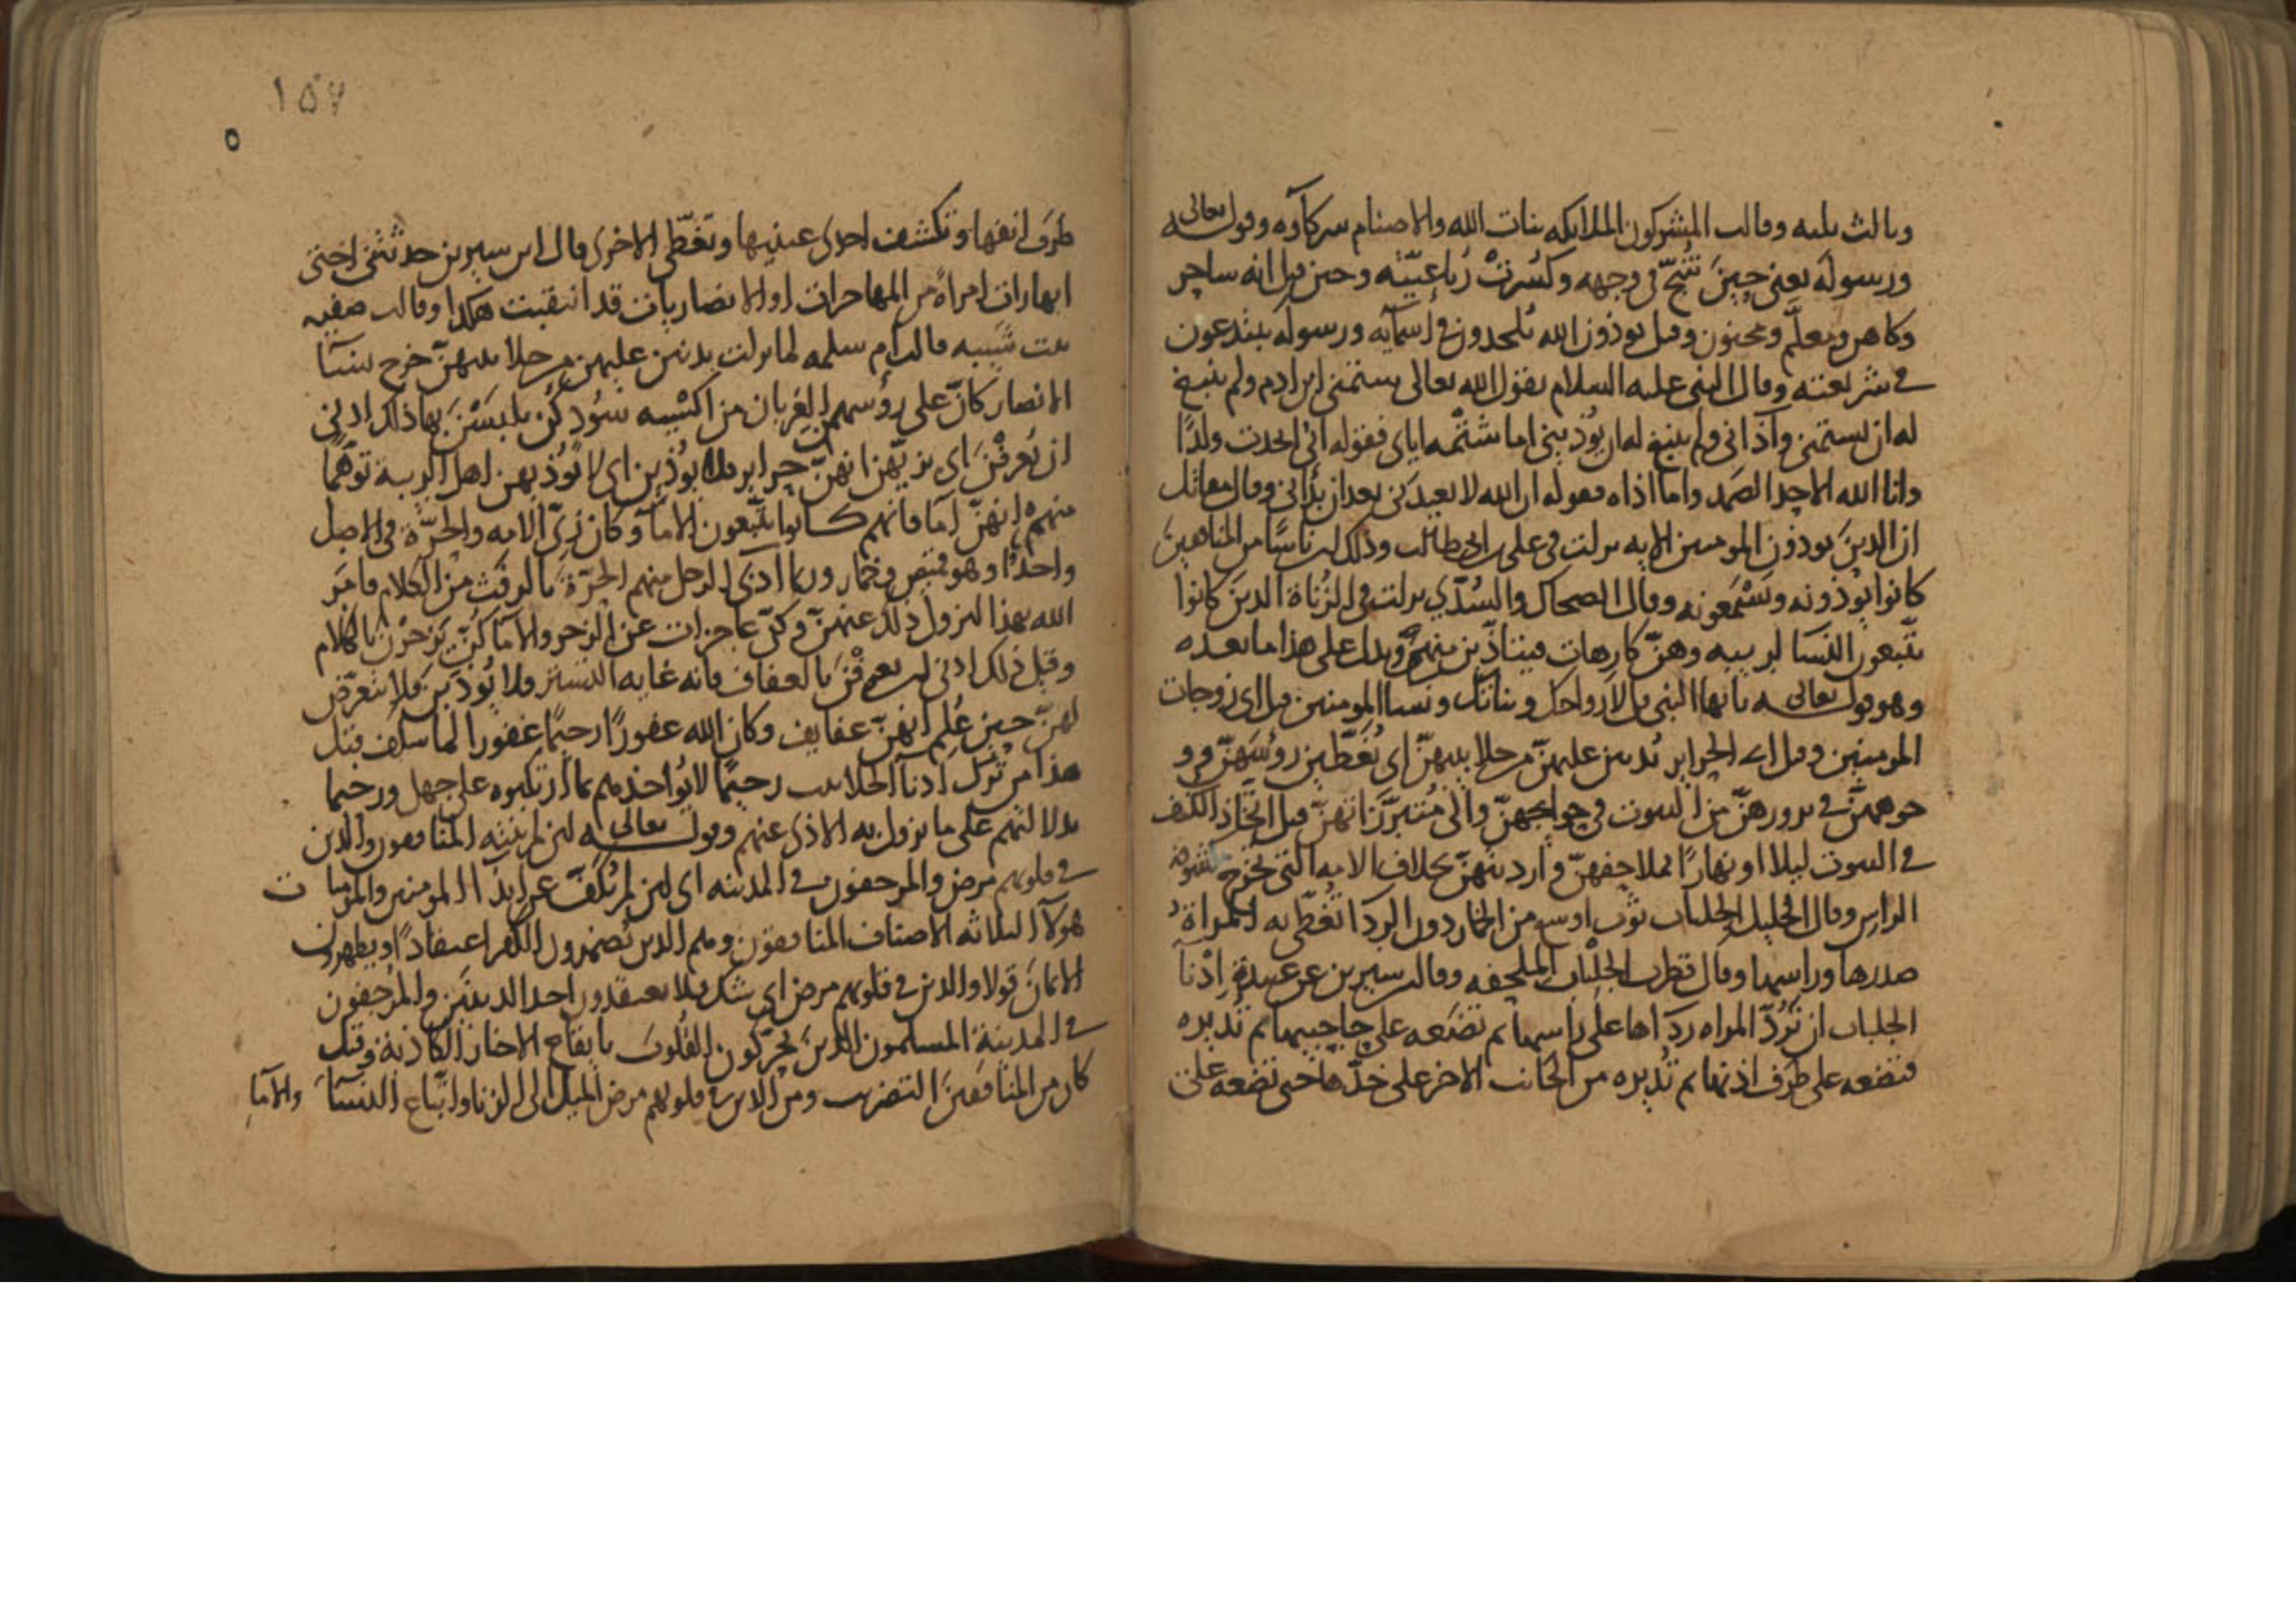 وثالث ثلثه وقالت المشركون الملايكه بنات الله والاصنام شركاؤه وقوله تعالى
ورسوله يعنى حين شُجّ فى وجهه وكُسِرتْ رُباعيّته وحين قيل انه ساحر
وكاهن ومعلّم ومجنون وقيل يوذون الله يُلحدون فى اسمآيه ورسوله يبتدعون
فى شريعته وقال النبى عليه السلام يقول الله تعالى يشتمنى ابن ادم ولم ينبغ
له ان يشتمنى وآذانى ولم ينبغ له ان يُوذينى اما شتْمه اياى فقوله انى اتخذت ولدًا
وانا الله الاحد الصمد واما اذاه فقوله ان الله لا يعيدَنى بعد ان بدأنى وقال مقاتل
ان الذين يوذون المومنين الايه نزلت فى على بن ابى طالب وذلك ان ناسًا من المنافقين
كانوا يُوذونه ويَسْمَعونه وقال الضحاك والسُدّي نزلت فى الزُناة الذين كانوا
يتّبعون النسا لريبه وهنّ كارهات فيتاذّين منهم ويدل على هذا ما بعده
وهو قوله تعالى يايها النبى قل لازواجك وبناتك ونسا المومنين قيل اى زوجات
المومنين وقيل اى الحراير يُدنين عليهنّ من جلابيبهنّ اى يُغَطّين رؤُسَهنّ و
وجوههنّ فى برورهنّ من البيوت فى حوايجهنّ والى مُتبرَّزاتهنّ قبل اتّخاذ الكنف
فى البيوت ليلا او نهارًا بملاحفهنّ وارديتهنّ بخلاف الامه التى تخرج مكشوفة
الراس وقال الخليل الجلباب ثوب اوسع من الخمار دون الردا تُغطّى به المراة
صدرها وراسها وقال قطرب الجلْباب الملحفه وقال ابن سيرين عن عبيدة اِدْنآ
الجلباب ان تَرُدّ المراه ردآها على راسها ثم تضعه على حاجبيها ثم تُديره
فتضعه على طرَف اذنها ثم تُديره من الجانب الاخر على خدّها حتى تضعه على
١٥٧
طرَف انفها وتكشف احدى عينيها وتغطّى الاخرى قال ابن سيرين حدثتنى اختى
انها رات امراةً من المهاجرات او الانصاريات قد انتقبت هكذا وقالت صفيه
بنت شَيبه قالت ام سلمه لما نزلت يدنين عليهن من جلابيبهنّ خرج نسآ
الانصار كانّ على رؤُسهمن الغربان من اكسْيه سُود كُن يلبَسْنَ بها ذلك ادنى
ان يُعرفْنَ اى بزيّهن انهنّ حراير فلا يوُذين اى لا يُوْذيهن اهل الريبة توهّمًا
منهم انهنّ اِمآ فانهم كانوا يتّبعون الامآ وكان زىّ الامه والحرّة فى الاصل
واحدًا وهو قميص وخمار وربما آذى الرجل منهم الحرّةَ بالرفَث من الكلام فامَر
الله بهذا لتزول ذلك عنهنّ وكنّ عاجزات عن الزجر والامآ كُنّ يَزجرْن بالكلام
وقيل ذلك ادنى ان يعرفْنَ بالعفاف فانه غايه التستر فلا يُوذَين فلا يتعرّض
لهنّ حين عُلِم انهنّ عفايف وكان الله غفورًا رحيمًا غفورا لما سلف قبل
هذا من تُرك ادنآ الجلابيب رحيمًا لا يُواخذهم بما ارتكبوه على جهل ورحيما
بدلالتهم على ما يزول به الاذى عنهم وقوله تعالى لئن لم ينته المنافقون والذين
فى قلوبهم مرض والمرجفون فى المدينه اى لئن لم يُكفّ عن ايذآ المومنين والمومنات
هولآ الثلاثه الاصناف المنافقون وهم الذين يُضمرون الكفر اعتقادًا ويظهرون
الايمانَ قولا والذين فى قلوبهم مرض اى شك فلا يعتقدون احد الدينَين والمُرجفون
فى المدينة المسلمون الذين يُحرّكون القُلوب بايقاع الاخبار الكاذبة وقيل
كان من المنافقين التضريب ومن الذين فى قلوبهم مرض الميل الى الزنا واتّباع النسآ والامآ